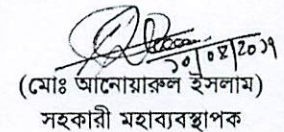 ১০/০৪/২০১৭
(মোঃ আনোয়ারুল ইসলাম)
সহকারী মহাব্যবস্থাপক